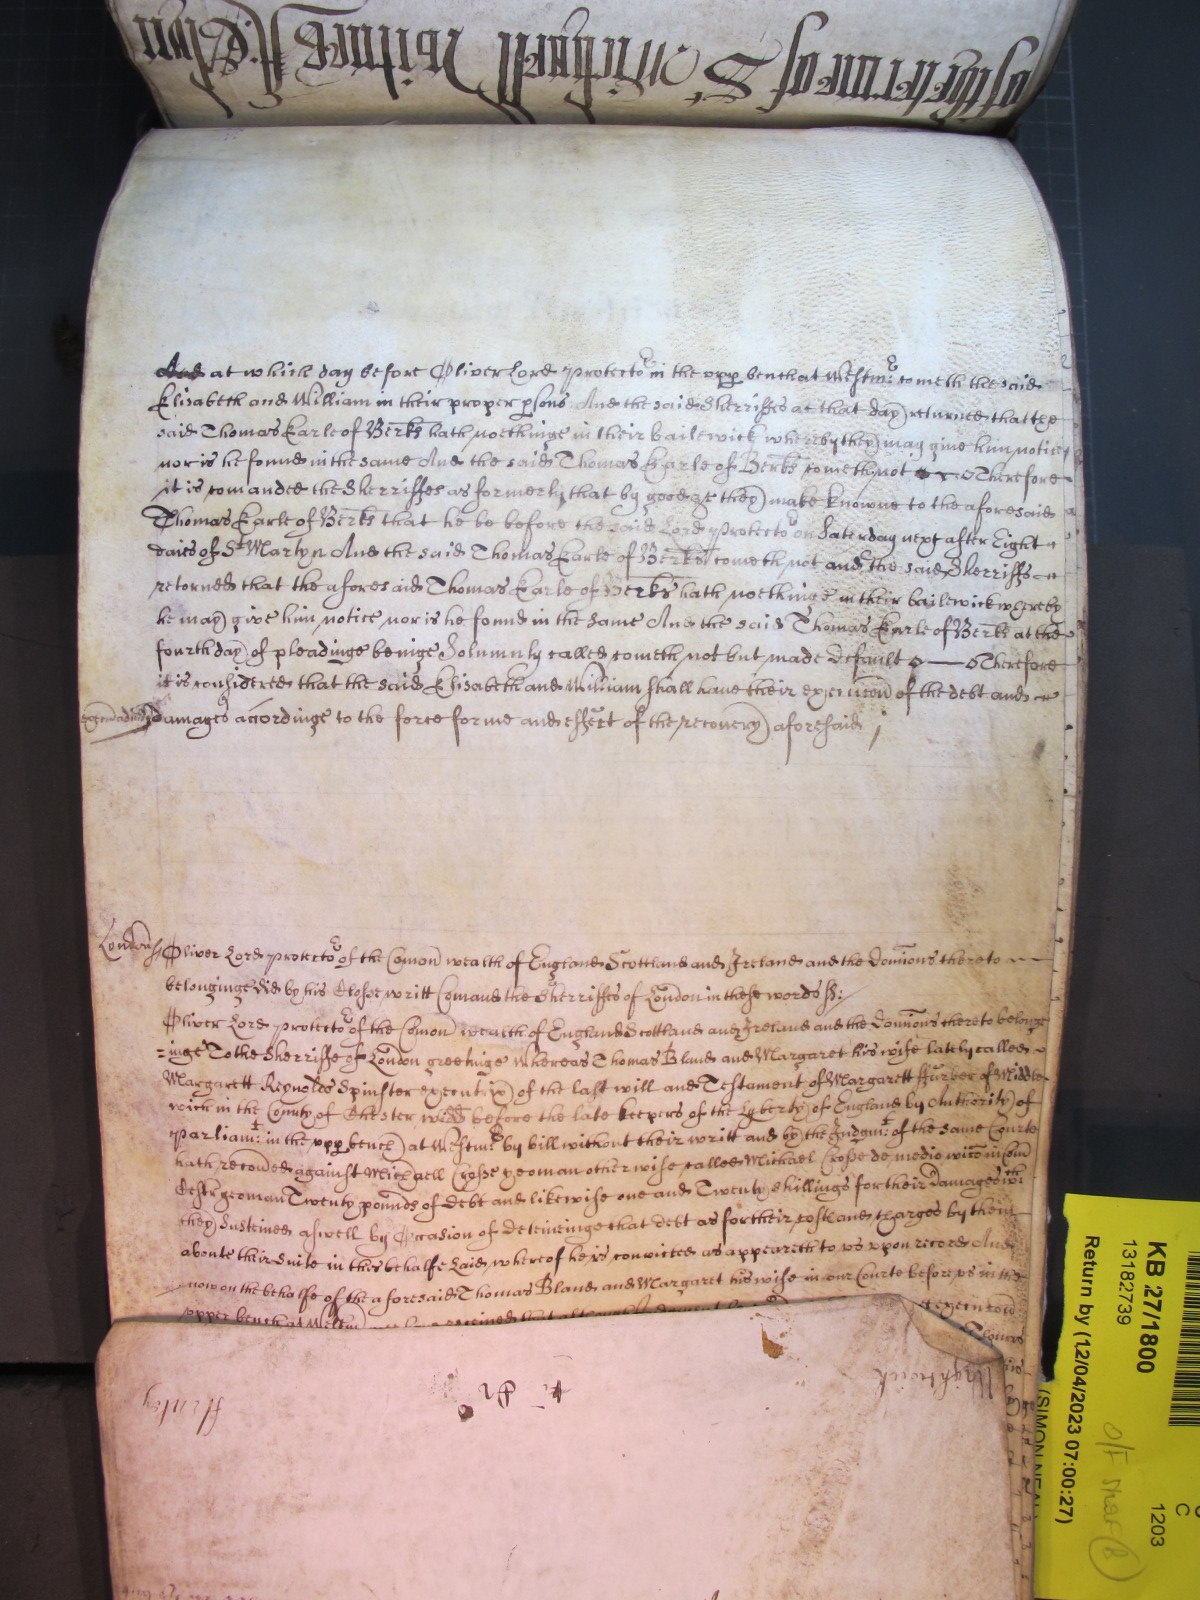 of the terme of St Michaell Witnes R: Aske
And at which day before Oliver Lord Protector in the upp bench at Westmr: cometh the said
Elizabeth and William in their proper psons And the said Sherriffes at that day returned that the
said Thomas Earle of Berks hath noethinge in their bailewick whereby they may give him notice
nor is he found in the same And the said Thomas Earle of Berks cometh not Therefore
it is comanded the Sherriffes as formerly that by good &c they make knowne to the aforesaid
Thomas Earle of Berks that he be before the said Lord Protector on Saturday next after Eight
daies of St Martyn And the said Thomas Earle of Berks cometh not and the said Sherriffs
retorned that the aforesaid Thomas Earle of Berks hath noethinge in their bailewick whereby
he may give him notice nor is he found in the same And the said Thomas Earle of Berks at the
fourth day of pleadinge beinge Solemnly called cometh not but made default Therefore
it is considered that the said Elizabeth and William shall have their execucon of the debt and
damages accordinge to the force forme and effect of the recovery aforesaid
London ss Oliver Lord Protector of the Comon wealth of England Scottland and Ireland and the Dominions thereto
belonginge did by his Close writt Comand the Sherriffes of London in these words ss:
Oliver Lord Protector of the Comon wealth of England Scottland and Ireland and the Dominions thereto belonge
=inge To the Sherriffe of London greetinge Whereas Thomas Bland and Margaret his wife lately called
Margarett Reynolds Spinster executrix of the last will and Testament of Margarett ffurber of Middle
wich in the County of Chester widd before the late keepers of the Lyberty of England by Authority of
Parliamt: in the upp bench at Westmr by bill without their writt and by the Judgmt: of the same Courte
hath recoved against Michaell Crosse yeoman otherwise called Michael Crosse de medio wico in Com
Cestr yeoman Twenty pounds of debt and likewise one and Twenty shillings for their damages wch:
they susteined aswell by Occasion of deteineinge that debt as for their costs and Charges by them
aboute their Suite in this behalfe laid whereof he is convicted as appeareth to us uppon record And
now on the behalfe of the aforesaid Thomas Bland and Margaret his wife in our Courte before us in the
upper bench at Westm
execucon
Henley
Wightwick
KB 27/1800
13182739
Return by (12/04/2023 07:00:27)
(SIMON NEAL
C
1203